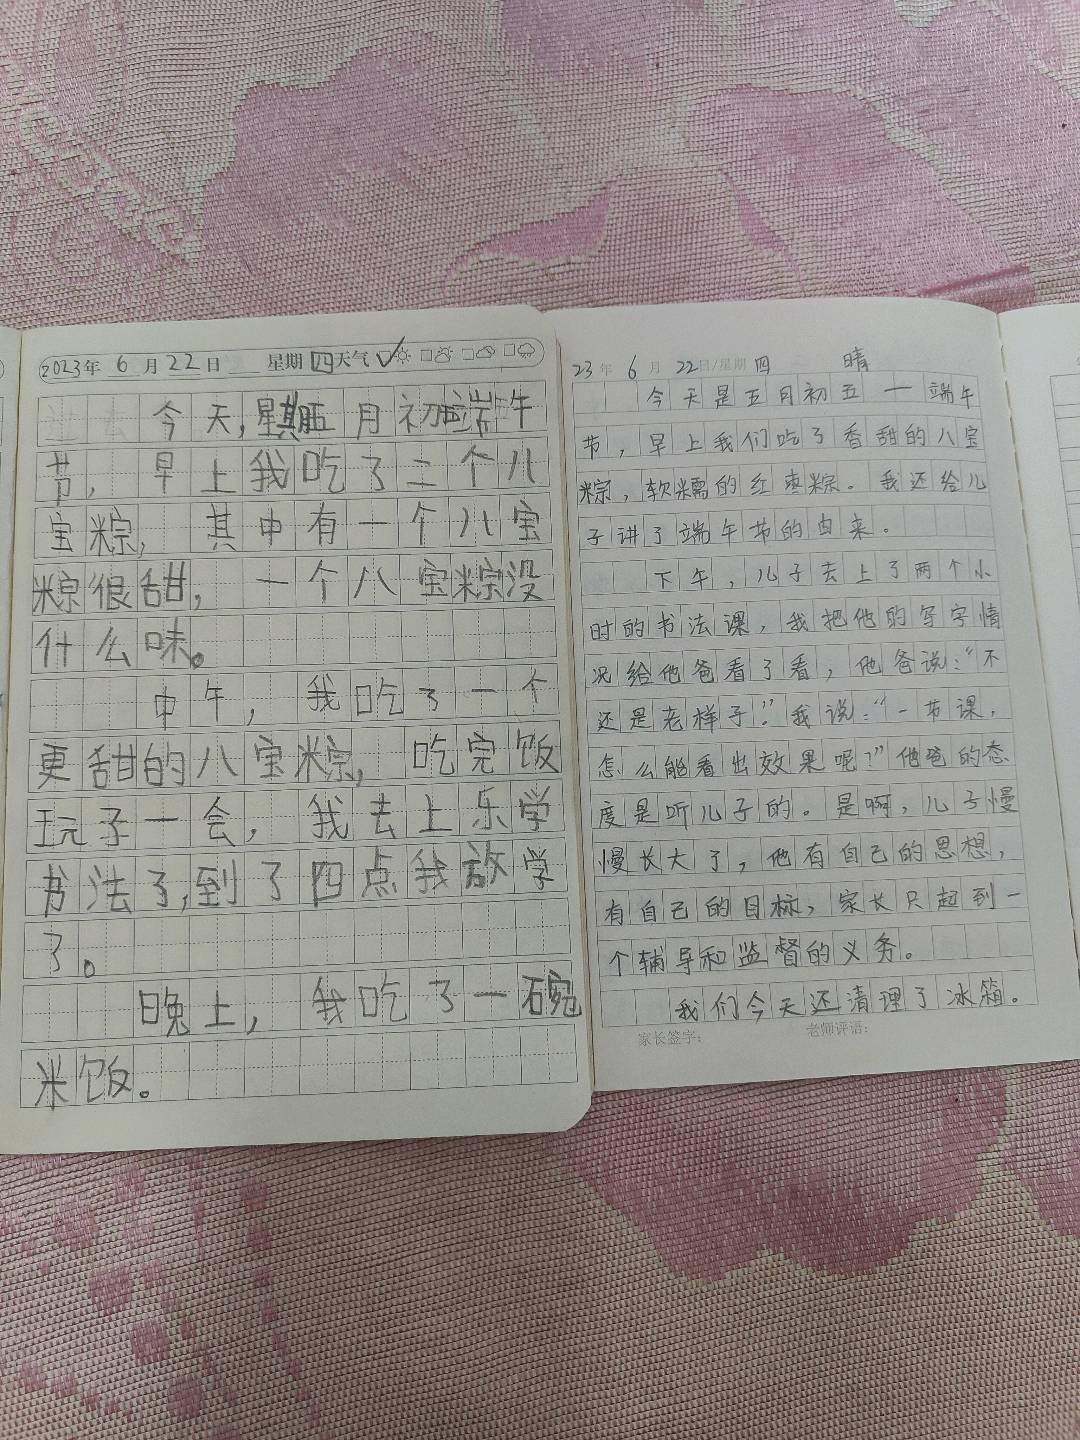 2023年 6月 22日 星期四天气
今天,星期五月初五端午
节,早上我吃了二个八
宝粽,其中有一个八宝
粽很甜,一个八宝粽没
什么味。
中午,我吃了一个
更甜的八宝粽,吃完饭
玩了一会,我去上乐学
书法了,到了四点我放学
了。
晚上,我吃了一碗
米饭。
23年 6月 22日/星期四 晴
今天是五月初五一端午
节,早上我们吃了香甜的八宝
粽,软糯的红枣粽。我还给儿
子讲了端午节的由来。
下午,儿子去上了两个小
时的书法课,我把他的写字情
况给他爸看了看,他爸说:“不
还是老样子!”我说:“一节课,
怎么能看出效果呢?”他爸的态
度是听儿子的。是啊,儿子慢
慢长大了,他有自己的思想,
有自己的目标,家长只起到一
个辅导和监督的义务。
我们今天还清理了冰箱。
家长签字: 老师评语: